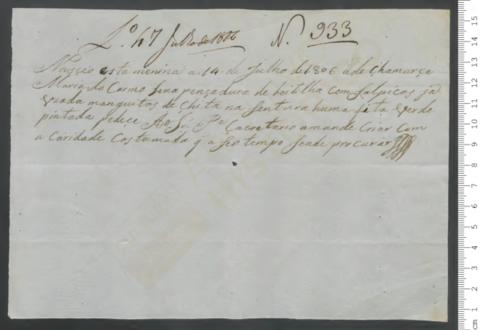 Lº 47 Julho de 1806 N. 933
Nasceo esta menina a 14 de Julho de 1806 a de chamarçe
Maria do Carmo Leva pençadura de bertilha com salpicos ja
uzada manguitos de chita na sentura huma fita verde
pintada pedeçe Ao Snr Pe a mande Criar Com
a Caridade Costumada q a seo tempo seade procurar